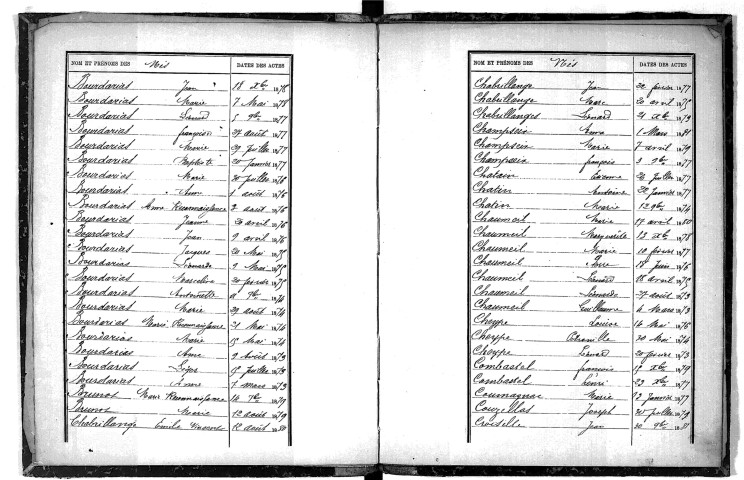 NOM ET PRÉNOMS DES Nés DATES DES ACTES
Bourdarias Jean 18 Xbre 1878
Bourdarias Marie 7 Mai 1878
Bourdarias Léonard 5 9bre 1877
Bourdarias françoise 27 août 1877
Bourdarias Marie 29 Juillet 1877
Bourdarias Baptiste 20 Janvier 1877
Bourdarias Marie 30 Juillet 1876
Bourdarias Anna août 1876
Bourdarias Anne Reconnaissance 2 août 1876
Bourdarias Jeanne 20 avril 1876
Bourdarias Jean 9 avril 1876
Bourdarias Jacques 20 Mai 1875
Bourdarias Léonarde 9 Mai 1875
Bourdarias Marceline 20 février 1875
Bourdarias Antoinette 9bre 1874
Bourdarias Marie 29 août 1874
Bourdarias Marie Reconnaissance 21 Mai 1874
Bourdarias Marie Mai 1874
Bourdarias Anne 9 Août 1873
Bourdarias Juillet 1873
Bourdarias Anne 7 mars 1873
Brunot Marie Reconnaissance 16 1879
Brunot Marie 12 août 1879
Chabrillange Emile 12 août 1880
NOM ET PRÉNOMS DES Nés DATES DES ACTES
Chabrillange Jean 22 février 1877
Chabrillange Marc 20 avril 1875
Chabrillanges Léonard 21 Xbre 1873
Champsein Anna 1 Mars 1881
Champsein Marie 7 avril 1879
Champsein françois 3 9bre 1877
Chatain 26 Juillet 1877
Chatin Antoine 22 Janvier 1877
Chatin Marie 12 9bre 1874
Chaumeil Marie 17 avril 1880
Chaumeil Marguerite 12 Xbre 1878
Chaumeil Marie 10 février 1877
Chaumeil 18 Juin 1876
Chaumeil Léonard 18 avril 1875
Chaumeil Léonarde 27 août 1873
Chaumeil 6 Mars 1873
Cheype Louise 16 Mai 1876
Cheype Pétronille 30 Mai 1874
Cheype Léonard 20 février 1873
Combastel françois 17 Xbre 1879
Combastel henri 23 Xbre 1877
Coumagnac Marie 12 Janvier 1877
Couzellas Joseph 25 Juillet 1879
Croiselle Jean 30 9bre 1881